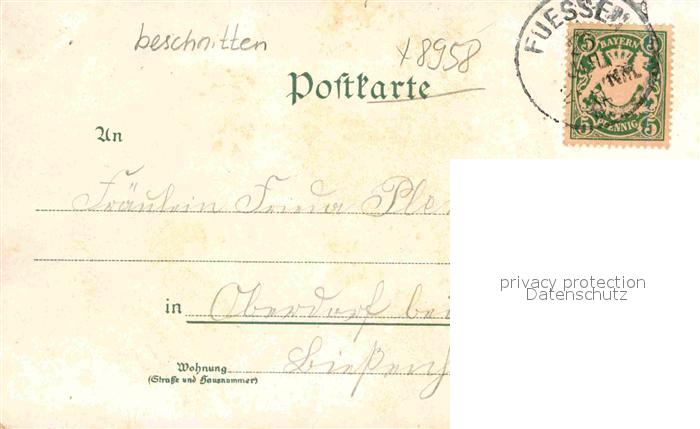 beschnitten
x 8958
FUESSEN
NM.
5 BAYERN 5
5 PFENNIG 5
Postkarte
An
Fräulein Frieda Plo
privacy protection
Datenschutz
in Oberdorf bei
Wohnung
(Straße und Hausnummer)